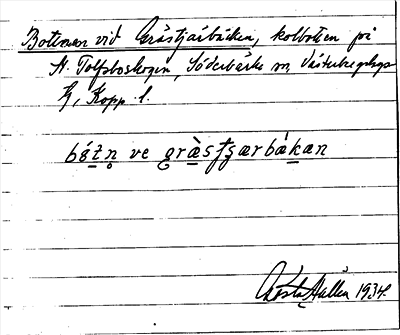 Bottnar vid Grästjärbäcken, kolbotten på
N. Tolfsboskogen, Söderbärke sn, Västerbergslags
H, Kopp. l.
bótn ve gràsʈʂærbàkæn
Gösta Hallén 1934.